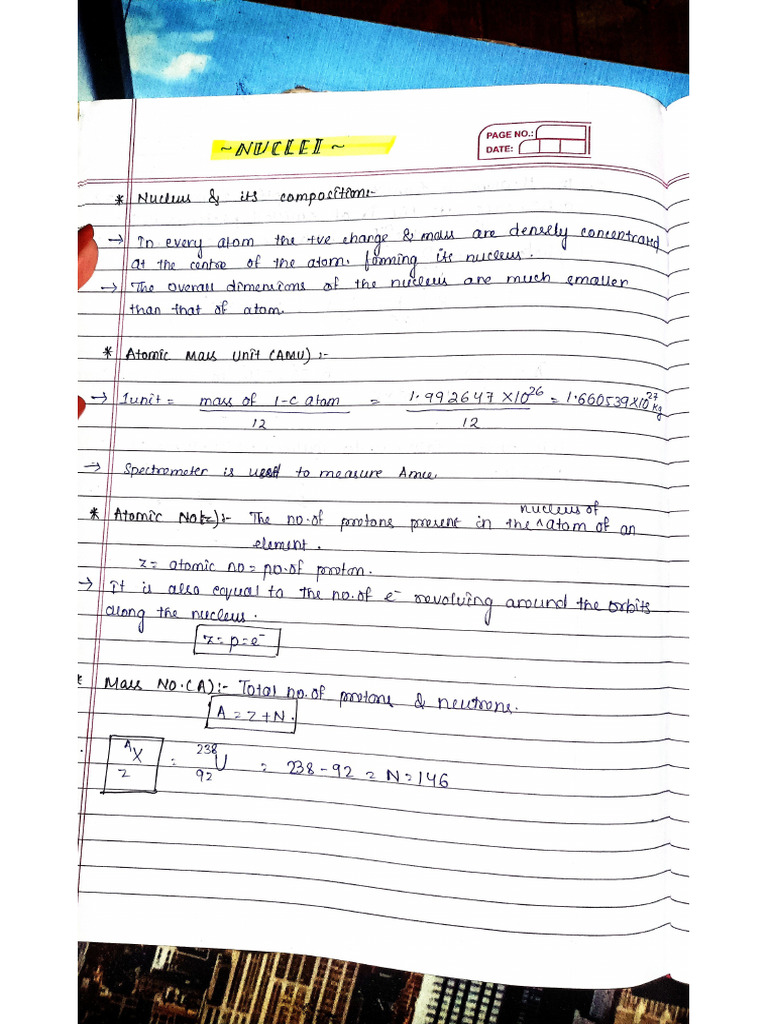 ~NUCLEI~
PAGE NO.:
DATE:
* Nucleus & its compositions-
→ In every atom the +ve charge & mass are densely concentrated
at the centre of the atom. forming its nucleus.
→ The overall dimensions of the nucleus are much smaller
than that of atom.
* Atomic Mass Unit (AMU) :-
→ 1unit = mass of 1-C atom / 12 = 1.992647 X10^26 / 12 = 1.660539 X10^27 kg
→ Spectrometer is used to measure Amu.
* Atomic No(z):- The no. of protons present in the ^ nucleus of atom of an
element.
z = atomic no = no. of proton.
→ it is also equal to the no. of e⁻ revolving around the orbits
along the nucleus.
z = p = e⁻
* Mass No. (A) :- Total no. of protons & neutrons.
A = z + N.
ᴬX z = 238 U 92 = 238 - 92 = N = 146